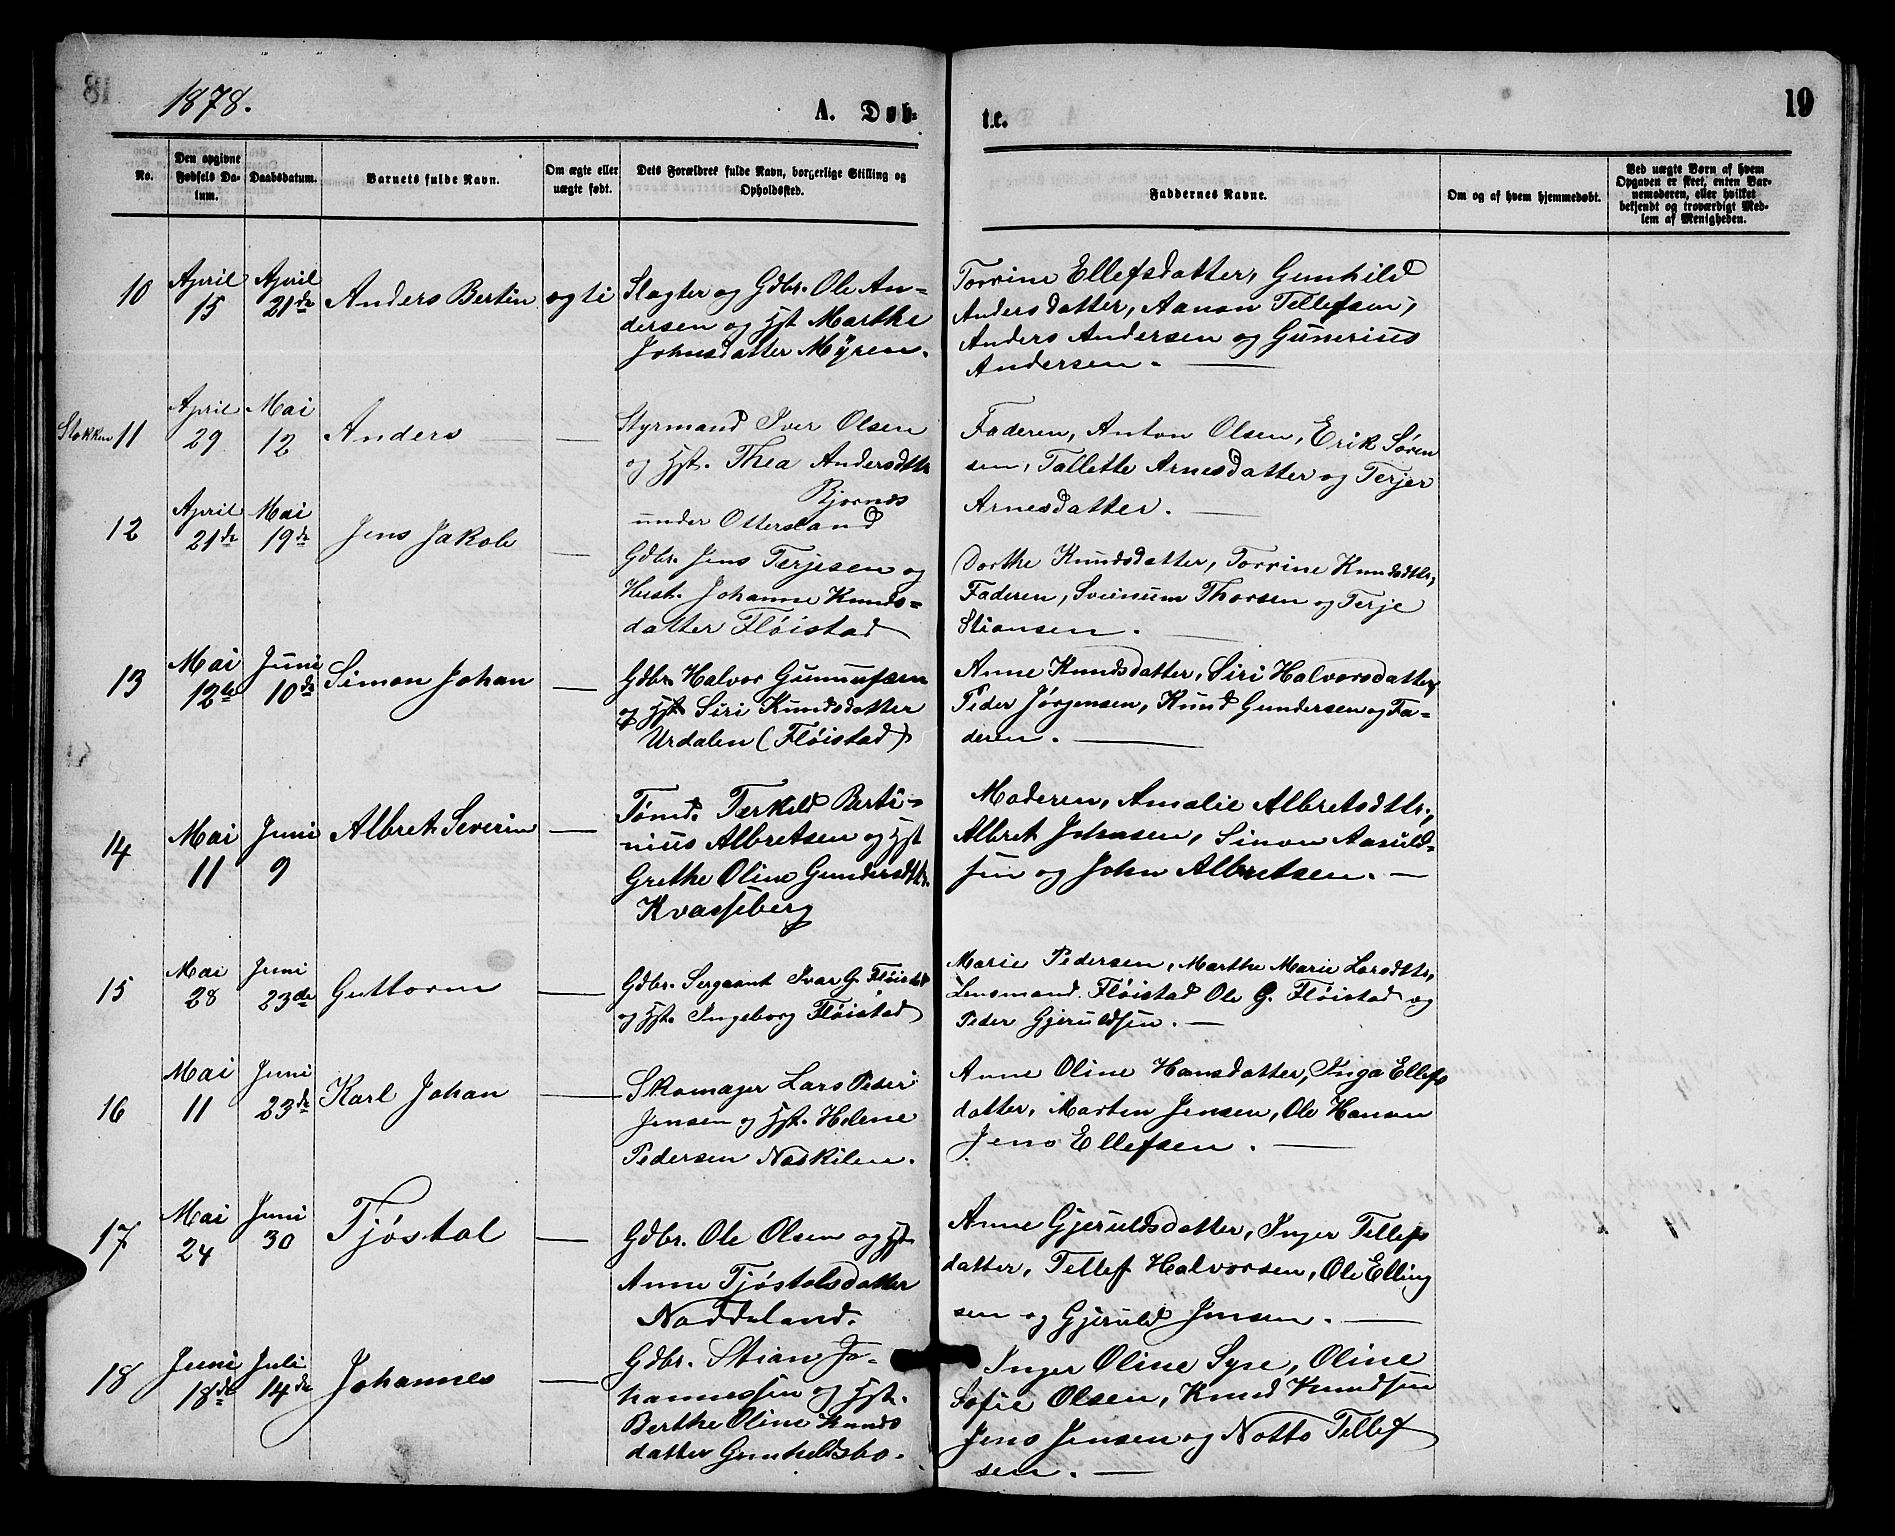 1878.
A. Døb-
te.
19
No.
Den opgivne Fødsels Da-tum.
Daabsdatum.
Barnets fulde Navn.
Om ægte eller uægte født.
Dets Forældres fulde Navn, borgerlige Stilling og Opholdssted.
Faddernes Navne.
Om og af hvem hjemmedøbt.
Ved uægte Børn af hvem Opgaven er skeet, enten Bar-nemoderen, eller hvilket bekjendt og troværdigt Med-lem af Menigheden.
10 April 15 April 21de Anders Bertin ægti
Slagter og Gdbr. Ole An-
dersen og Hst Marthe
Johnsdatter Myren.
Torrine Ellefsdatter, Gunhild
Andersdatter, Aanon Tellefsen,
Anders Andersen og Gunerius
Andersen. —
Stokken 11 April 29 Mai 12 Anders —
Styrmand Iver Olsen
og Hst. Thea Andersdttr
Bjornes
under Ottersland
Faderen, Anton Olsen, Erik Sören
sen, Tallette Arnesdatter og Terjer
Arnesdatter. —
12 April 21de Mai 19de Jens Jakob —
Gdbr. Jens Terjesen og
Hust. Johanne Knuds-
datter Flöistad
Dorthe Knudsdatter, Torrine Knudsdttr,
Faderen, Sveinum Thorsen og Terje
Stiansen. —
13 Mai 12te Juni 10de Simon Johan —
Gdbr. Halvor Gunnufsen
og Hst Siri Knudsdatter
Urdalen (Flöistad)
Anne Knudsdatter, Siri Halvorsdatter,
Peder Jörgensen, Knud Gundersen og Fa-
deren. —
14 Mai 11 Juni 9 Albret Severin —
Tömd. Terkild Berti-
nius Albretsen og Hst
Grethe Oline Gundersdttr.
Kvasseberg
Moderen, Amalie Albretsdttr.,
Albret Johnsen, Simon Aasuld-
sen og John Albretsen. —
15 Mai 28 Juni 23de Guttorm —
Gdbr. Sergeant Ivar G. Flöistad
og Hst. Ingeborg Flöistad
Marie Pedersen, Marthe Marie Larsdttr,
Lensmand. Flöistad Ole G. Flöistad og
Peder Gjeruldsen. —
16 Mai 11 Juni 23de Karl Johan —
Skomager Lars Peder
Jensen og Hst. Helene
Pedersen Naskilen.
Anne Oline Hansdatter, Inga Ellefs
datter, Morten Jensen, Ole Hansen
Jens Ellefsen. —
17 Mai 24 Juni 30 Tjöstal —
Gdbr. Ole Olsen og Hst
Anne Tjöstalsdatter
Naddeland.
Anne Gjeruldsdatter, Inger Tellefs
datter, Tellef Halvorsen, Ole Elling
sen og Gjeruld Jensen. —
18 Juni 18de Juli 14de Johannes —
Gdbr. Stian Jo-
hannessen og Hst.
Berthe Oline Knuds
datter Gunheldsbo.
Inger Oline Syse, Oline
Sofie Olsen, Knud Knudsen
Jens Jensen og Notto Tellef
sen. —